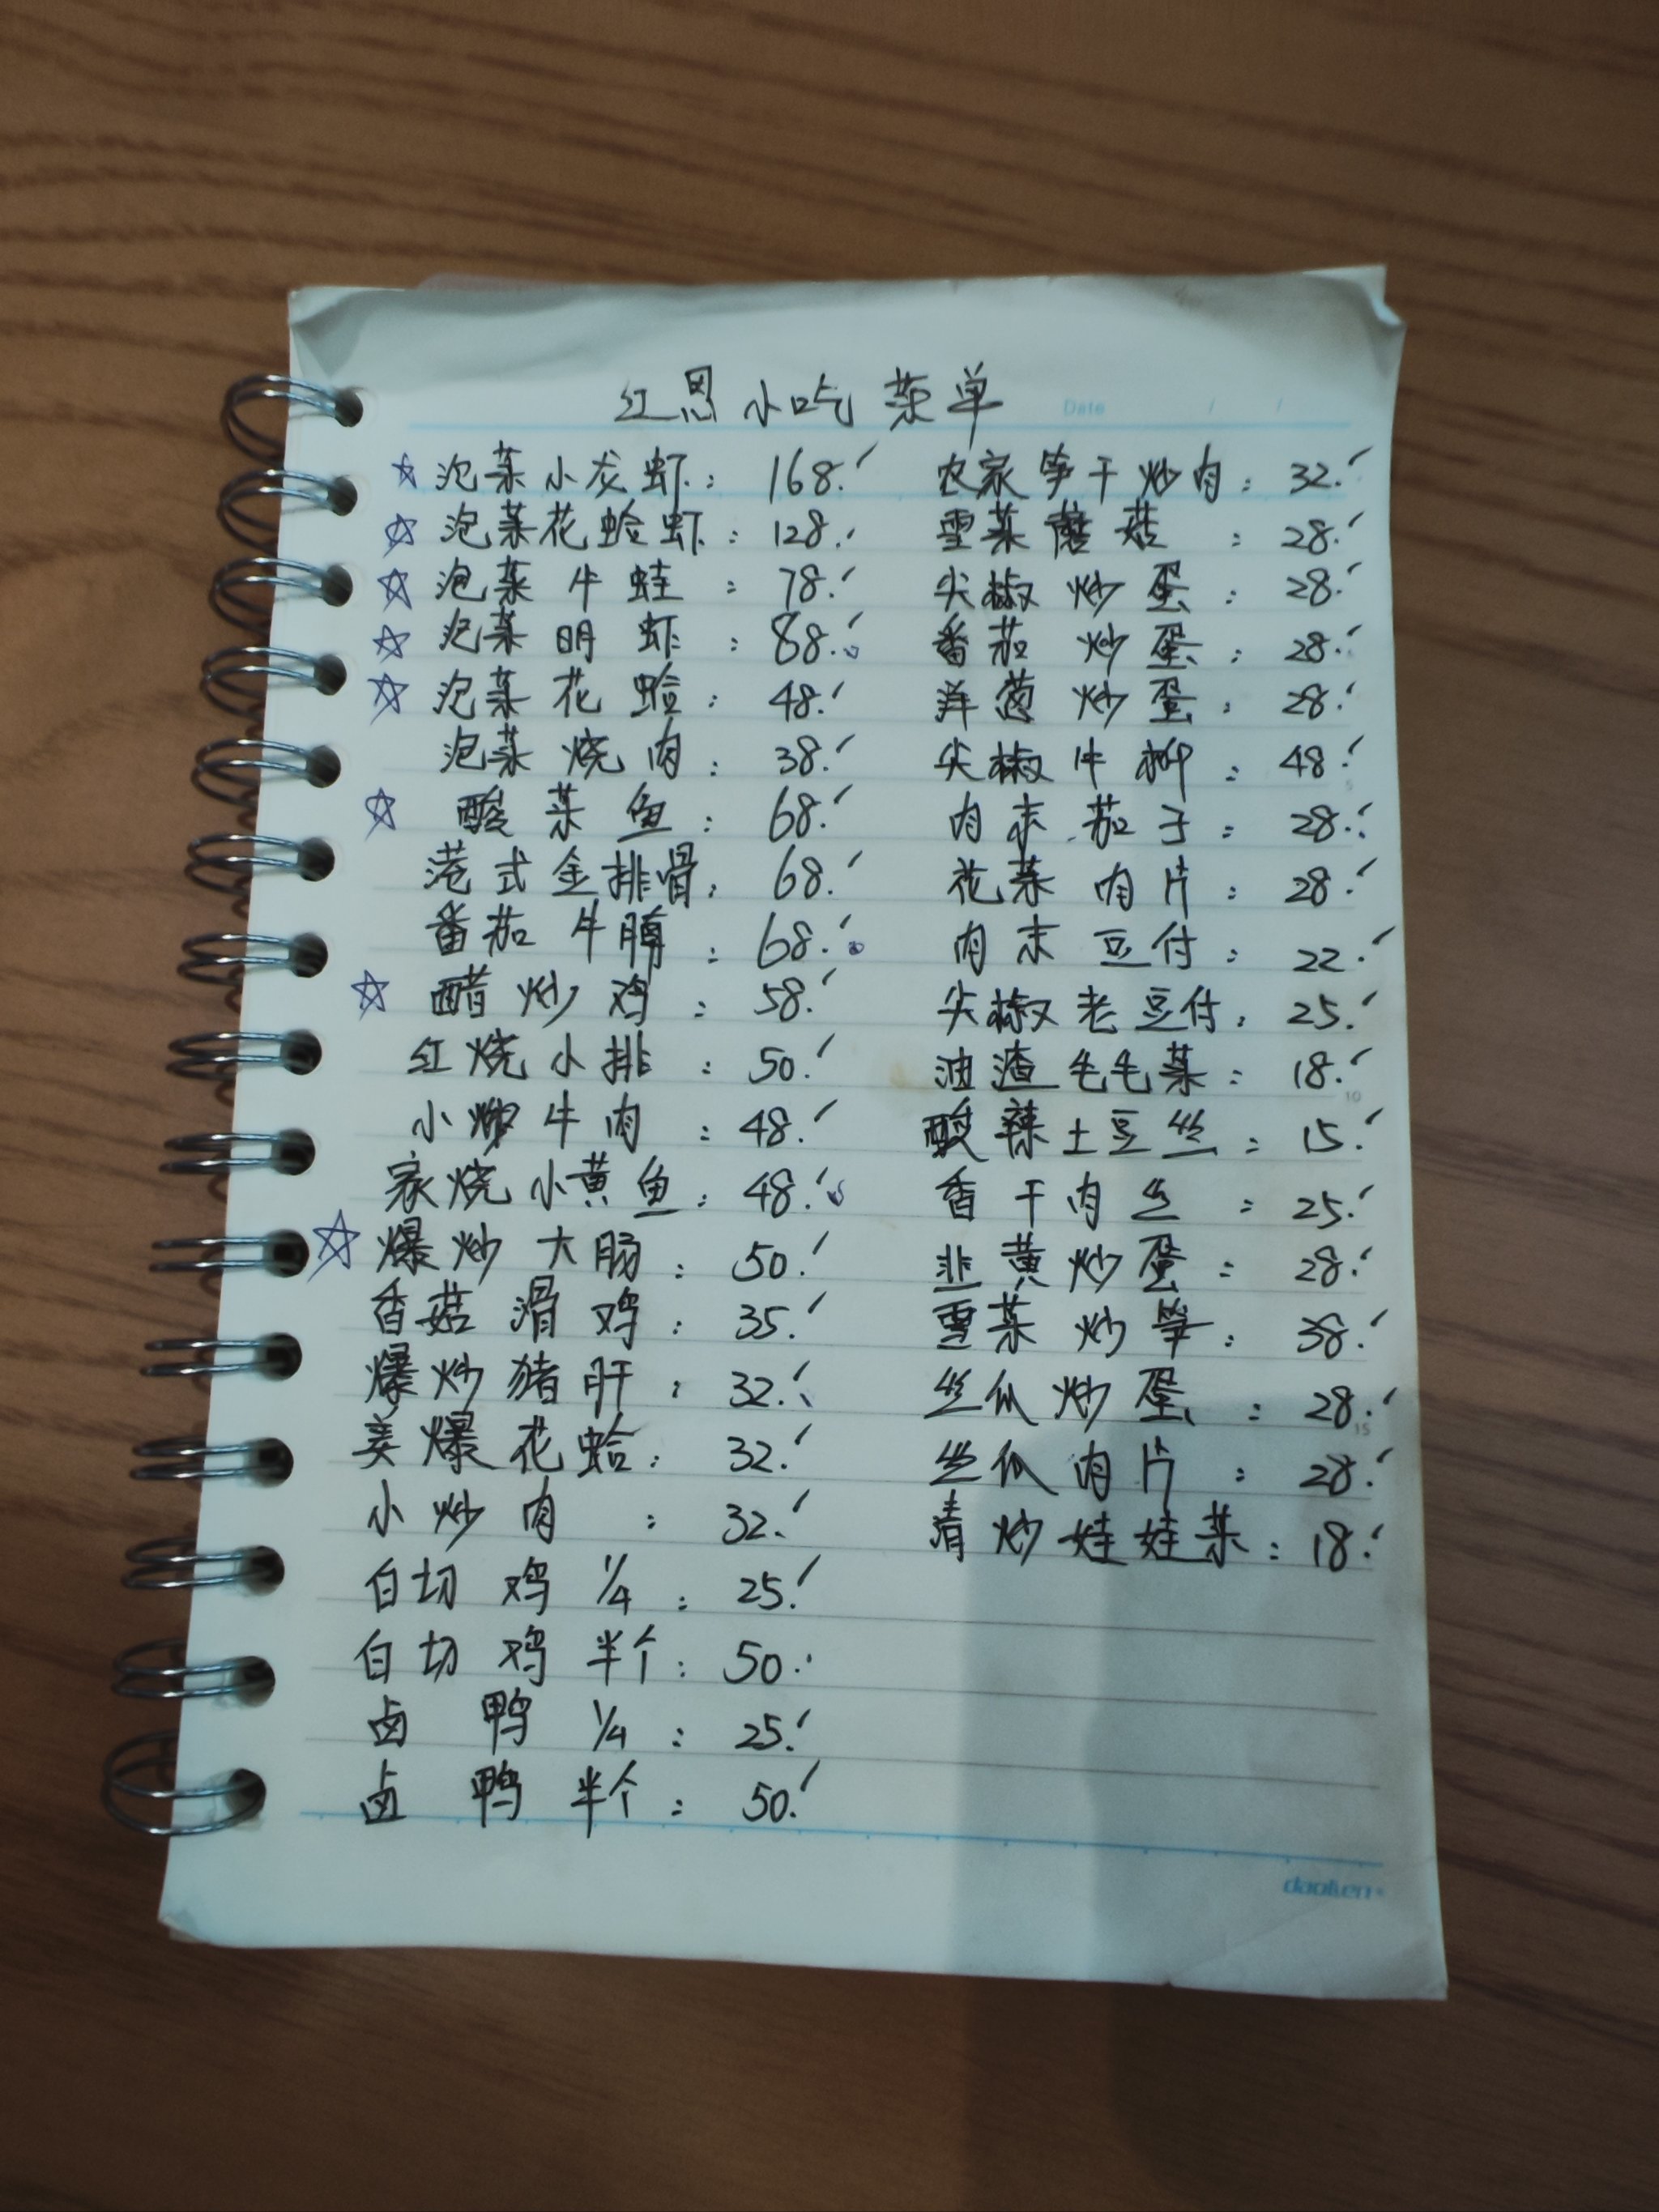 红恩小吃菜单
Date / /
☆泡菜小龙虾: 168.
☆泡菜花蛤虾: 128.
☆泡菜牛蛙: 78.
☆泡菜明虾: 88.
☆泡菜花蛤: 48.
泡菜烧肉: 38.
☆酸菜鱼: 68.
港式金排骨: 68.
番茄牛腩: 68.
☆醋炒鸡: 58.
红烧小排: 50.
小炒牛肉: 48.
家烧小黄鱼: 48.
☆爆炒大肠: 50.
香菇滑鸡: 35.
爆炒猪肝: 32.
姜爆花蛤: 32.
小炒肉: 32.
白切鸡1/4: 25.
白切鸡半个: 50.
卤鸭1/4: 25.
卤鸭半个: 50.
农家笋干炒肉: 32.
雪菜蘑菇: 28.
尖椒炒蛋: 28.
番茄炒蛋: 28.
洋葱炒蛋: 28.
尖椒牛柳: 48.
肉末茄子: 28.
花菜肉片: 28.
肉末豆付: 22.
尖椒老豆付: 25.
油渣毛毛菜: 18.
酸辣土豆丝: 15.
香干肉丝: 25.
韭黄炒蛋: 28.
雪菜炒笋: 38.
丝瓜炒蛋: 28.
丝瓜肉片: 28.
清炒娃娃菜: 18.
5
10
15